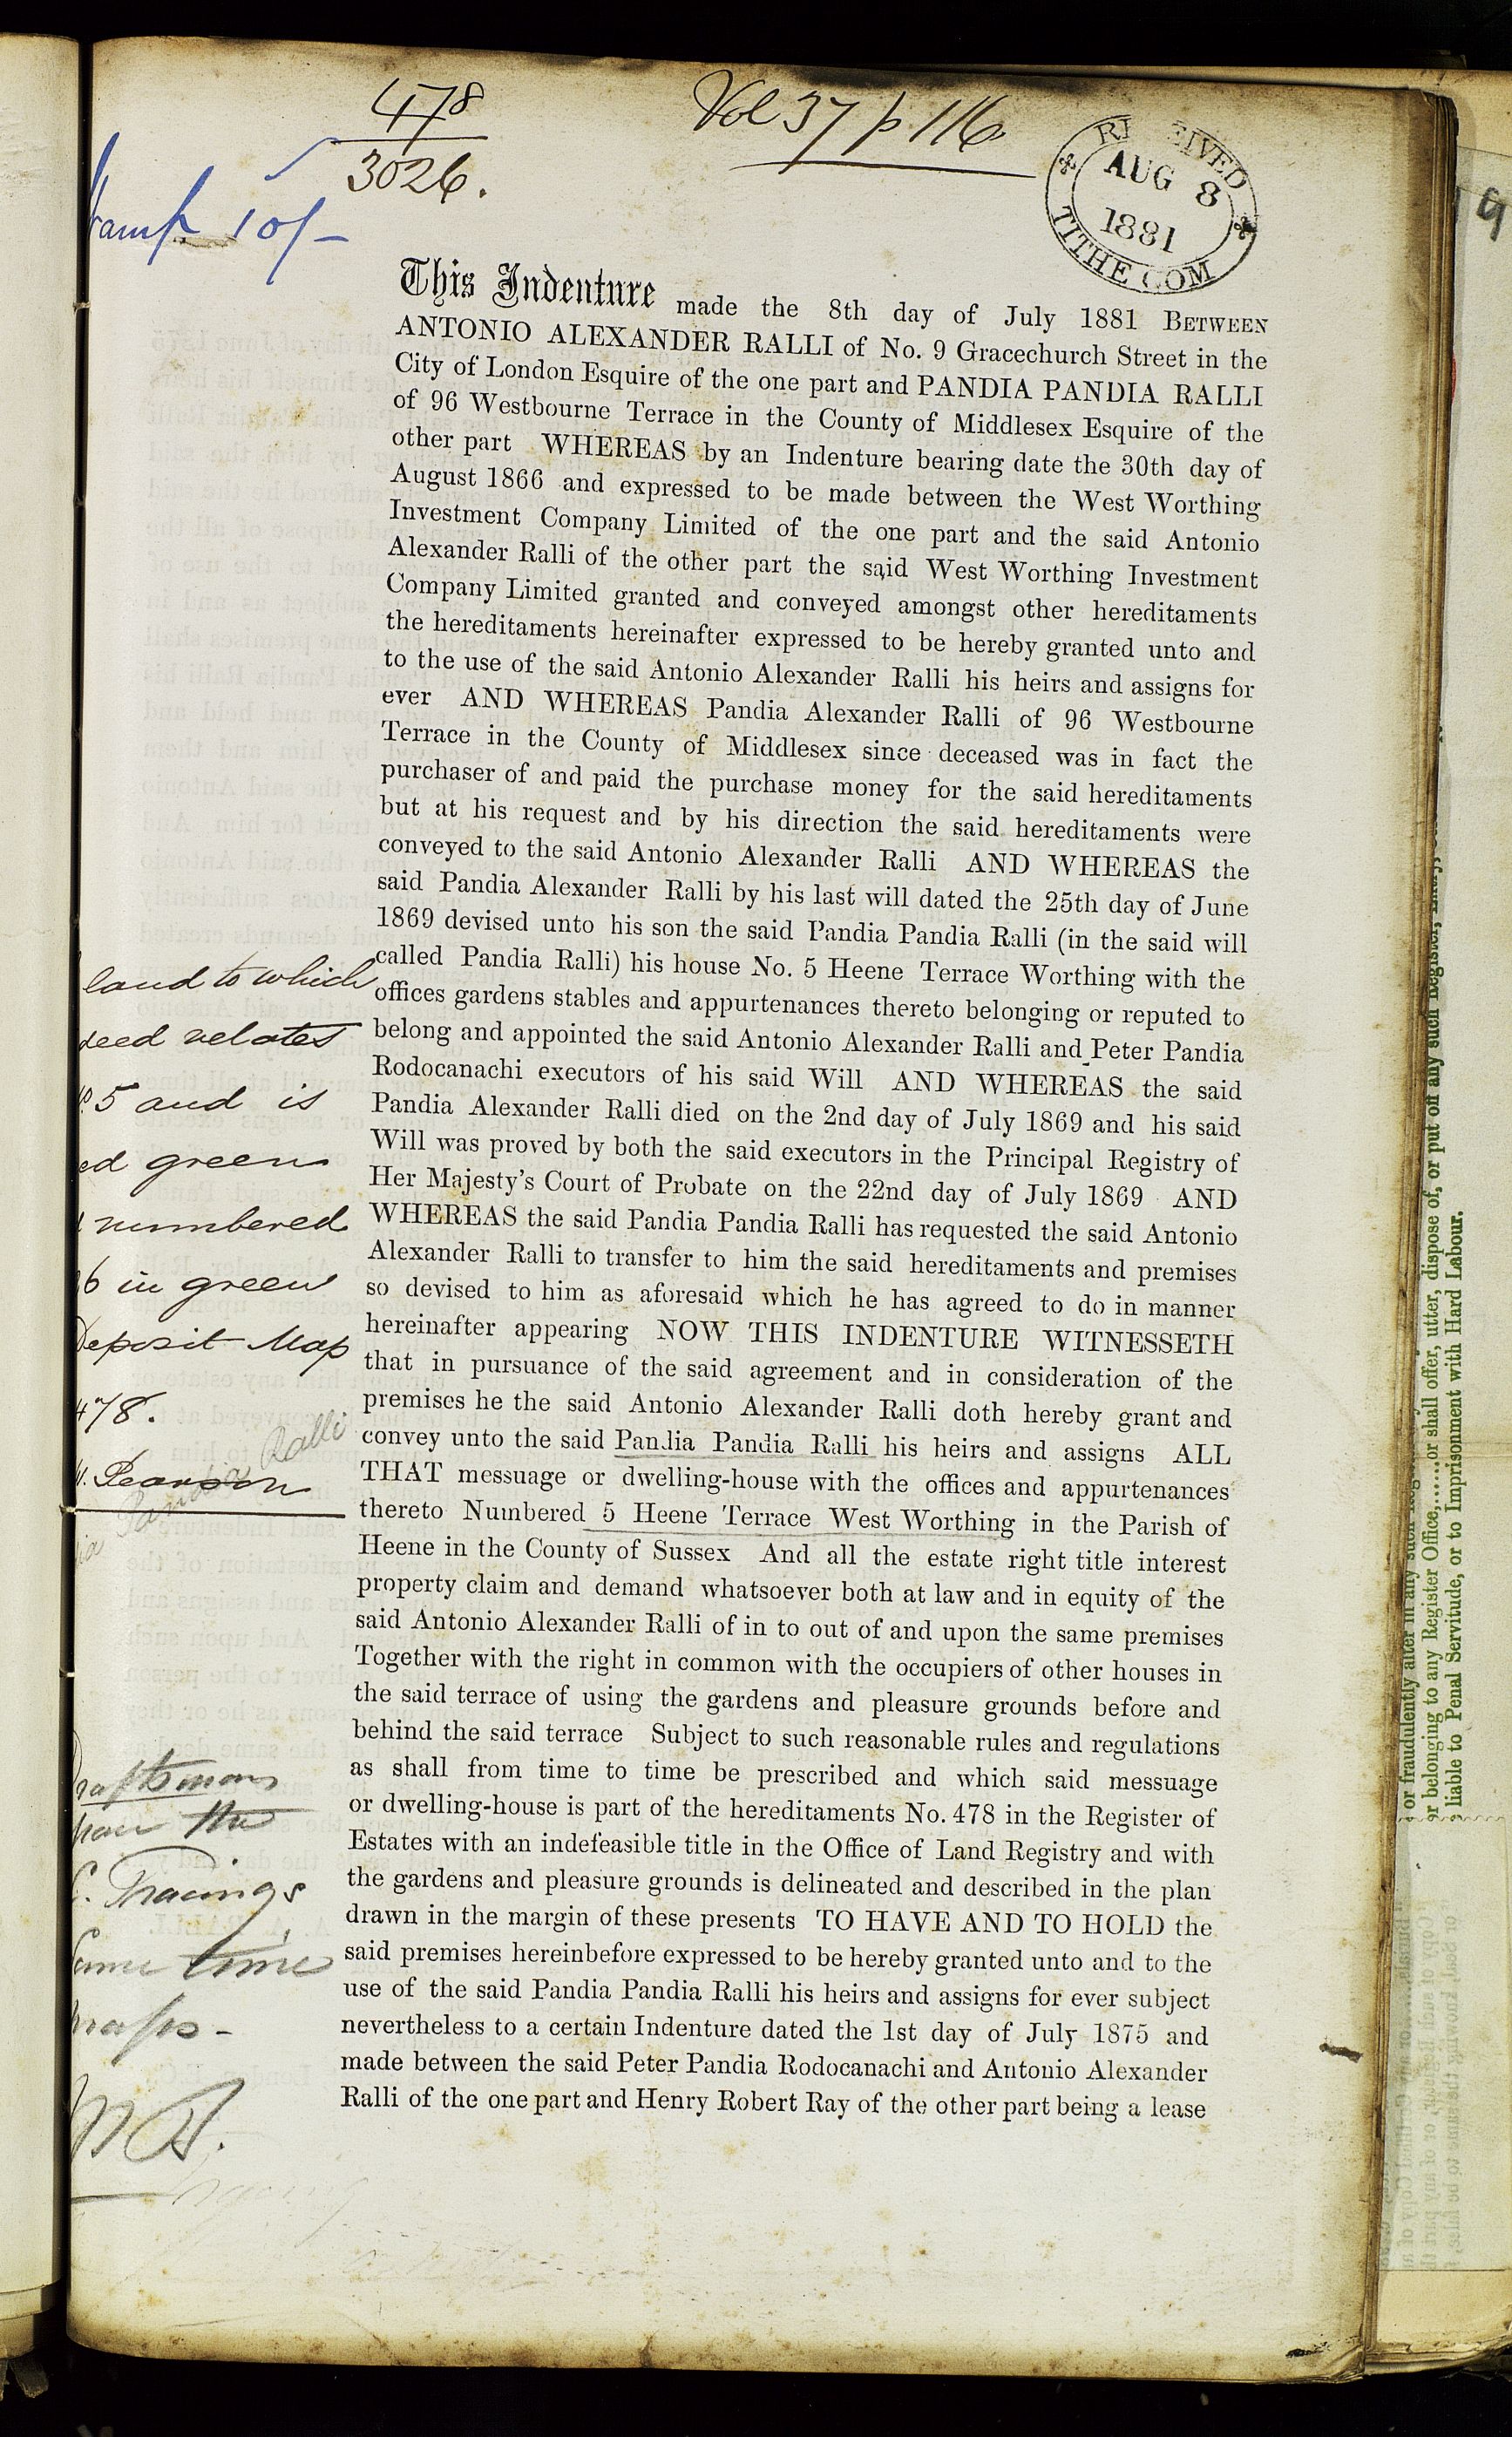 478
3026.
Vol 37 p 116
10/-
RECEIVED
AUG 8
1881
TITHE COM
This Indenture made the 8th day of July 1881 BETWEEN
ANTONIO ALEXANDER RALLI of No. 9 Gracechurch Street in the
City of London Esquire of the one part and PANDIA PANDIA RALLI
of 96 Westbourne Terrace in the County of Middlesex Esquire of the
other part WHEREAS by an Indenture bearing date the 30th day of
August 1866 and expressed to be made between the West Worthing
Investment Company Limited of the one part and the said Antonio
Alexander Ralli of the other part the said West Worthing Investment
Company Limited granted and conveyed amongst other hereditaments
the hereditaments hereinafter expressed to be hereby granted unto and
to the use of the said Antonio Alexander Ralli his heirs and assigns for
ever AND WHEREAS Pandia Alexander Ralli of 96 Westbourne
Terrace in the County of Middlesex since deceased was in fact the
purchaser of and paid the purchase money for the said hereditaments
but at his request and by his direction the said hereditaments were
conveyed to the said Antonio Alexander Ralli AND WHEREAS the
said Pandia Alexander Ralli by his last will dated the 25th day of June
1869 devised unto his son the said Pandia Pandia Ralli (in the said will
called Pandia Ralli) his house No. 5 Heene Terrace Worthing with the
offices gardens stables and appurtenances thereto belonging or reputed to
belong and appointed the said Antonio Alexander Ralli and Peter Pandia
Rodocanachi executors of his said Will AND WHEREAS the said
Pandia Alexander Ralli died on the 2nd day of July 1869 and his said
Will was proved by both the said executors in the Principal Registry of
Her Majesty's Court of Probate on the 22nd day of July 1869 AND
WHEREAS the said Pandia Pandia Ralli has requested the said Antonio
Alexander Ralli to transfer to him the said hereditaments and premises
so devised to him as aforesaid which he has agreed to do in manner
hereinafter appearing NOW THIS INDENTURE WITNESSETH
that in pursuance of the said agreement and in consideration of the
premises he the said Antonio Alexander Ralli doth hereby grant and
convey unto the said Pandia Pandia Ralli his heirs and assigns ALL
THAT messuage or dwelling-house with the offices and appurtenances
thereto Numbered 5 Heene Terrace West Worthing in the Parish of
Heene in the County of Sussex And all the estate right title interest
property claim and demand whatsoever both at law and in equity of the
said Antonio Alexander Ralli of in to out of and upon the same premises
Together with the right in common with the occupiers of other houses in
the said terrace of using the gardens and pleasure grounds before and
behind the said terrace Subject to such reasonable rules and regulations
as shall from time to time be prescribed and which said messuage
or dwelling-house is part of the hereditaments No. 478 in the Register of
Estates with an indefeasible title in the Office of Land Registry and with
the gardens and pleasure grounds is delineated and described in the plan
drawn in the margin of these presents TO HAVE AND TO HOLD the
said premises hereinbefore expressed to be hereby granted unto and to the
use of the said Pandia Pandia Ralli his heirs and assigns for ever subject
nevertheless to a certain Indenture dated the 1st day of July 1875 and
made between the said Peter Pandia Rodocanachi and Antonio Alexander
Ralli of the one part and Henry Robert Ray of the other part being a lease
land to which
deed relates
5 and is
ed green
numbered
6 in green
Deposit Map
478.
Pearson
Ralli
the
Tracings
Same time
maps -
or put off any such Register,
or fraudulently alter in any such
er belonging to any Register Office,......or shall offer, utter, dispose of, or put off any such Register,
liable to Penal Servitude, or to Imprisonment with Hard Labour.